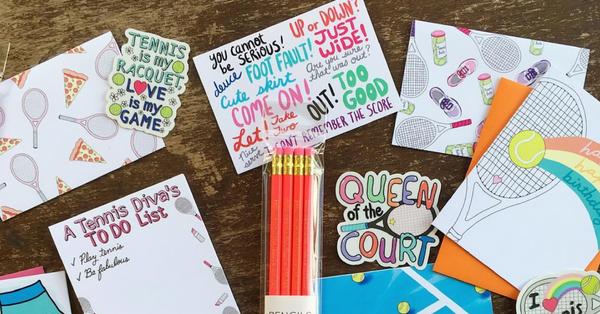 TENNIS is
my
RACQUET
LOVE is my
GAME
YOU CANNOT
BE SERIOUS!
UP or DOWN?
deuce
FOOT FAULT!
JUST
WIDE!
Cute skirt
Are you sure
that was out?
COME ON!
OUT!
TOO
GOOD
Let!
Take
Two
Nice
serve
I CAN'T REMEMBER THE SCORE
A Tennis Diva's
TO DO List
✓ Play tennis
✓ Be fabulous
QUEEN
of the
COURT
PENCILS
happy
birthday
I